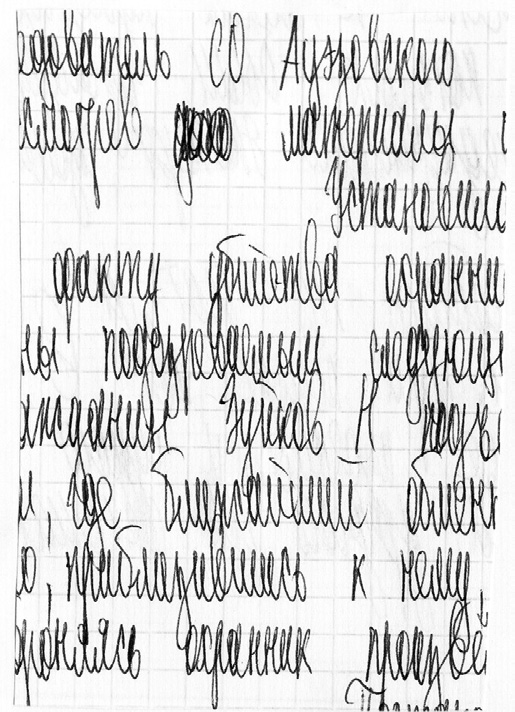 едователь СО Ауэзовского
смотрев материалы
Установил
факту убийства охранни
ны подозреваемым следующ
ождании Зуйков Н подъ
и, где ближайший обмен
о, приблизившись к нему
ороняясь охранник произве